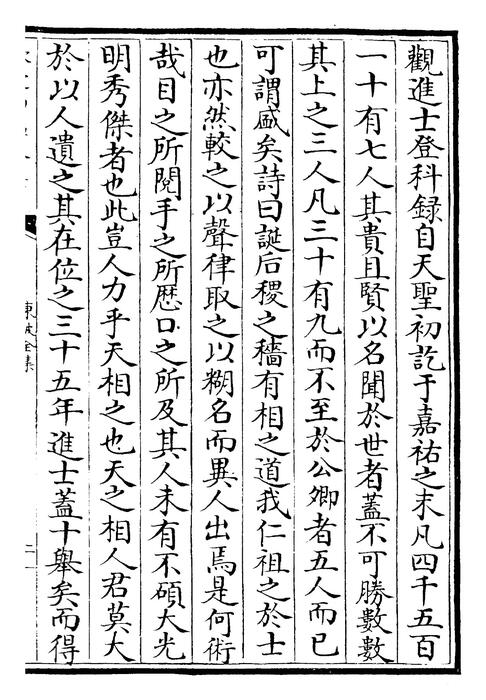 觀進士登科録自天聖初訖于嘉祐之末凡四千五百
一十有七人其貴且賢以名聞於世者蓋不可勝數數
其上之三人凡三十有九而不至於公卿者五人而已
可謂盛矣詩曰誕后稷之穡有相之道我仁祖之於士
也亦然較之以聲律取之以糊名而異人出焉是何術
哉目之所閱手之所歴口之所及其人未有不碩大光
明秀傑者也此豈人力乎天相之也天之相人君莫大
於以人遺之其在位之三十五年進士蓋十舉矣而得
東坡全集